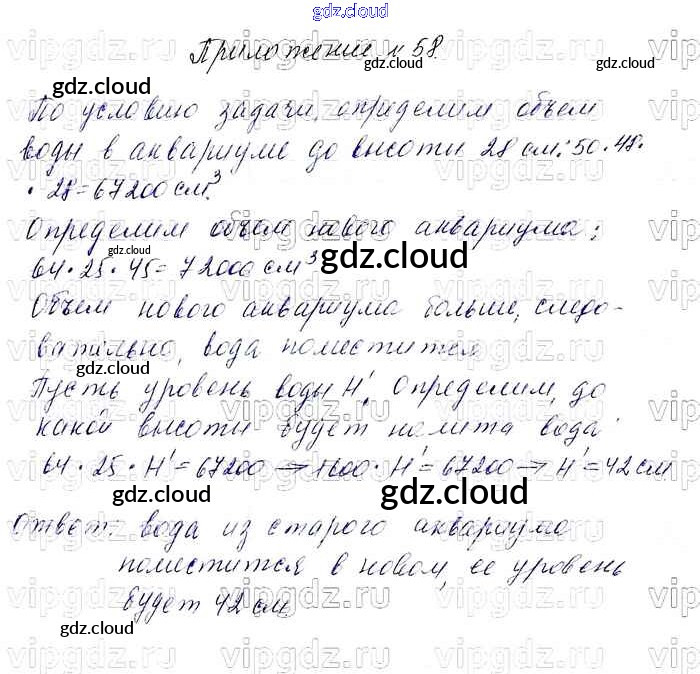 gdz.cloud
Приложение N 58.
gdz.cloud gdz.cloud
По условию задачи, определим объем
воды в аквариуме до высоты 28 см: 50 · 48 ·
· 28 = 67200 см³.
Определим объем нового аквариума:
gdz.cloud gdz.cloud
64 · 25 · 45 = 72000 см³
Объем нового аквариума больше, следо-
вательно, вода поместится
Пусть уровень воды H'. Определим, до
какой высоты будет налита вода:
64 · 25 · H' = 67200 → 1600 · H' = 67200 → H' = 42 см
gdz.cloud gdz.cloud
Ответ: вода из старого аквариума
поместится в новом, ее уровень
будет 42 см
gdz.cloud gdz.cloud